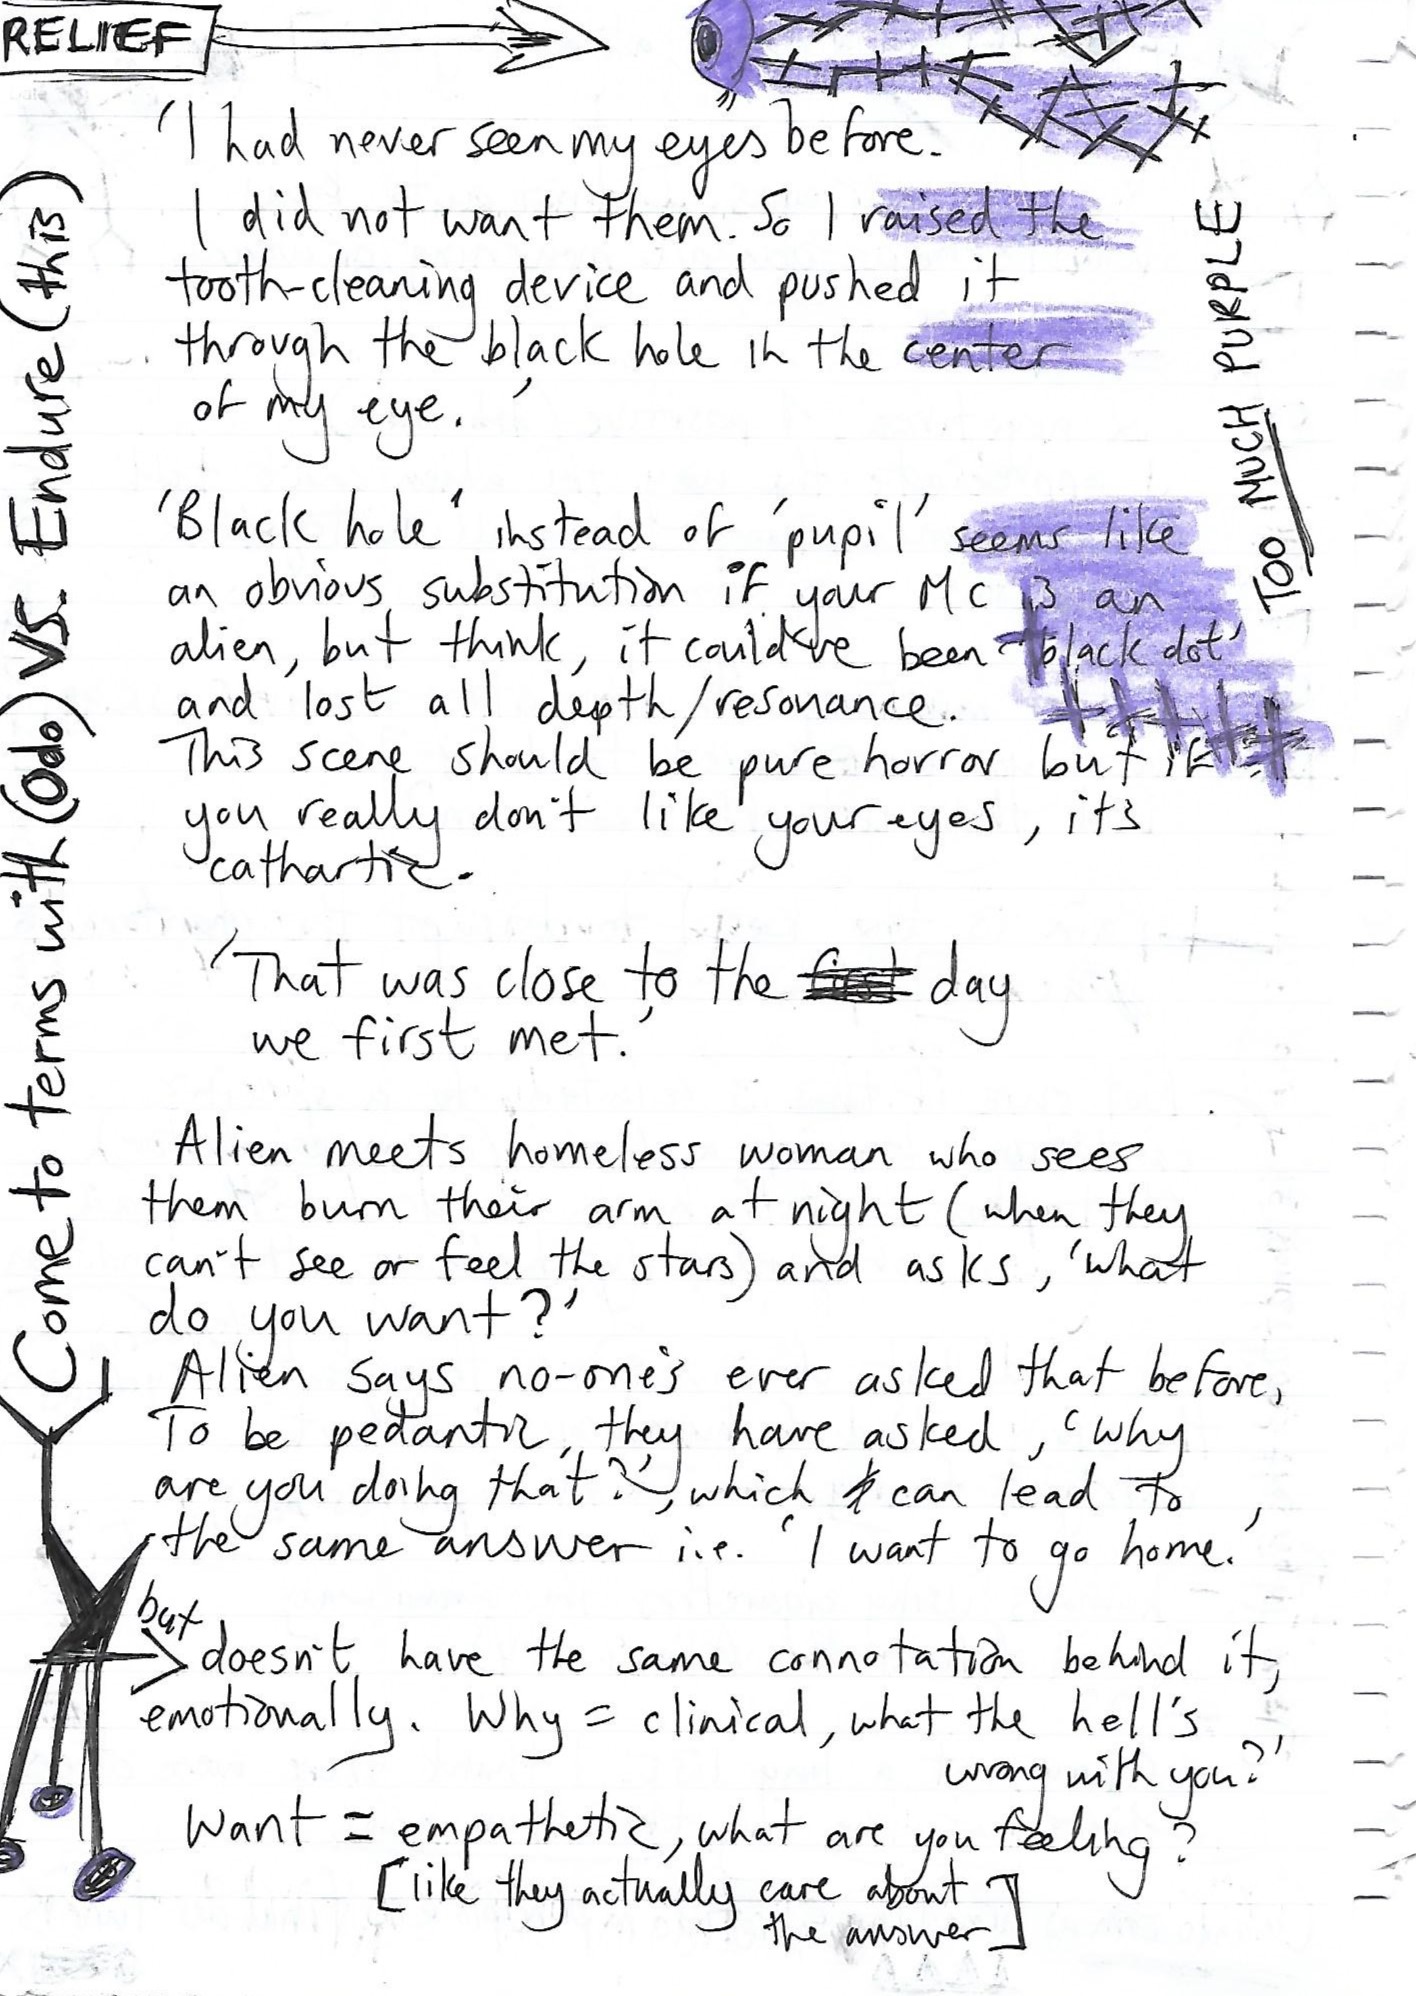 RELIEF
'I had never seen my eyes before.
I did not want them. So I raised the
tooth-cleaning device and pushed it
through the black hole in the center
of my eye.'
TOO MUCH PURPLE
Come to terms with (Odo) VS. Endure (this)
'Black hole' instead of 'pupil' seems like
an obvious substitution if your MC is an
alien, but think, it could've been 'black dot'
and lost all depth/resonance.
This scene should be pure horror but if
you really don't like your eyes, it's
cathartic.
'That was close to the first day
we first met.'
Alien meets homeless woman who sees
them burn their arm at night (when they
can't see or feel the stars) and asks, 'what
do you want?'
Alien says no-one's ever asked that before,
To be pedantic, they have asked, 'why
are you doing that?', which can lead to
the same answer i.e. 'I want to go home.'
but
doesn't have the same connotation behind it,
emotionally. Why = clinical, what the hell's
wrong with you?'
Want = empathetic, what are you feeling?
[like they actually care about
the answer]